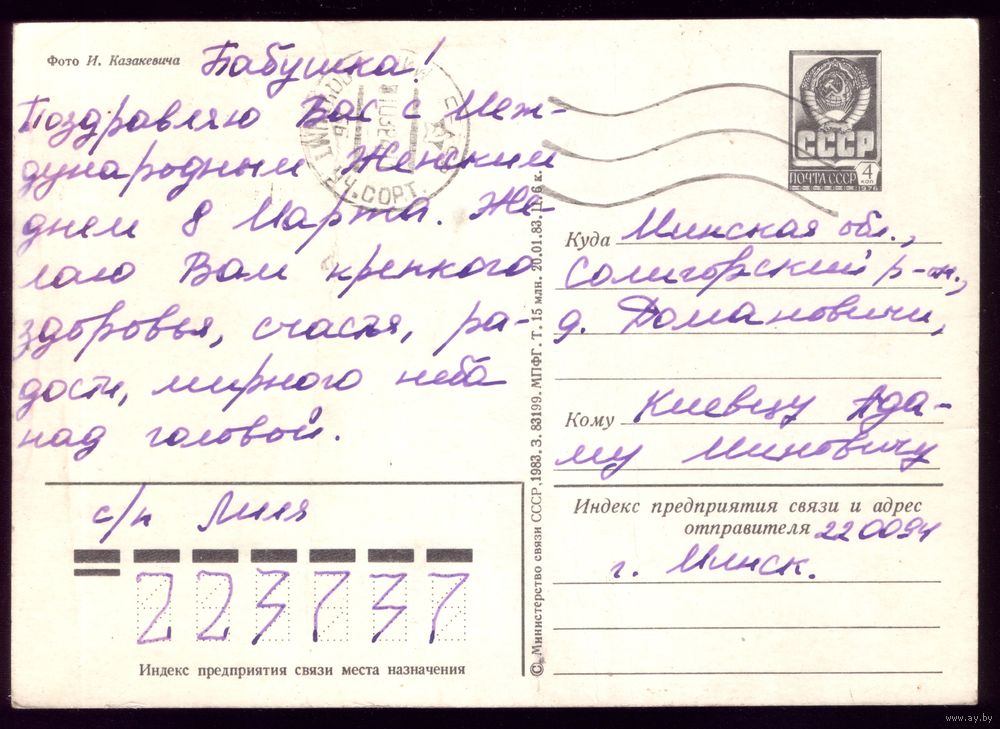 Фото И. Казакевича
Бабушка!
Поздравляю Вас с Меж-
дународным Женским
днем 8 Марта. Же-
лаю Вам крепкого
здоровья, счастья, ра-
дости, мирного неба
над головой.
с/п Лиля
223737
Индекс предприятия связи места назначения
© Министерство связи СССР. 1983. З. 83199. МПФГ. Т. 15 млн. 20.01.83. Ц. 6 к.
СССР
ПОЧТА СССР
4
КОП
1976
Куда Минская обл.,
Солигорский р-н,
д. Домановичи,
Кому Киевцу Ада-
му Миновичу
Индекс предприятия связи и адрес
отправителя 220094
г. Минск.
www.ay.by